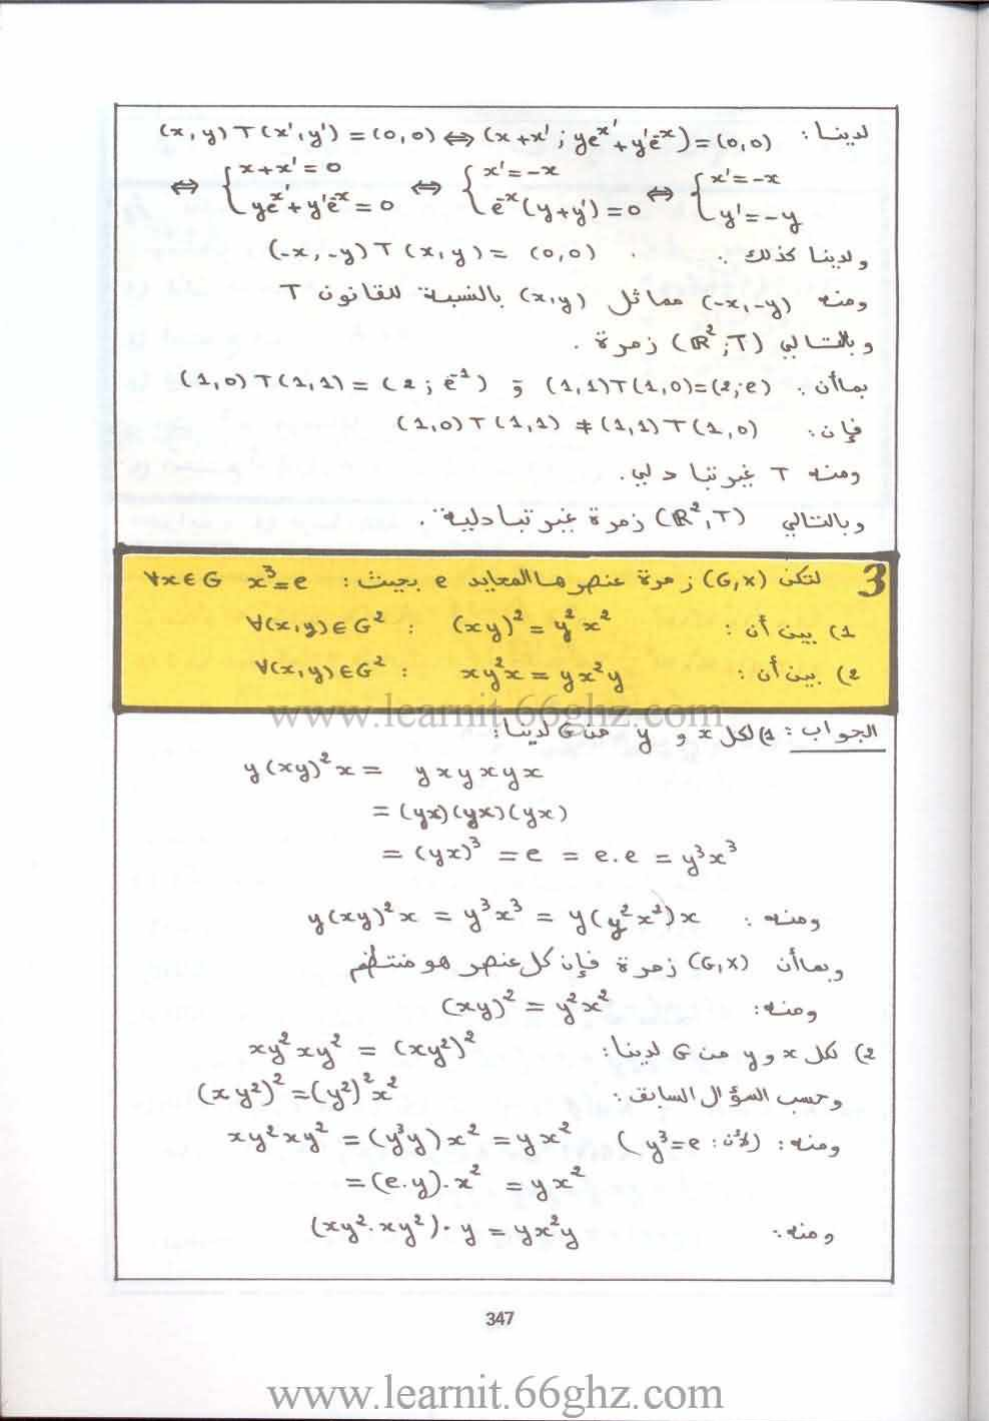 لدينا : (x,y)T(x',y') = (0,0) ⇔ (x+x' ; ye^x' + y'e^-x) = (0,0)
⇔ { x+x' = 0 ; ye^x' + y'e^-x = 0 ⇔ { x' = -x ; e^-x(y+y') = 0 ⇔ { x' = -x ; y' = -y
ولدينا كذلك : (-x,-y)T(x,y) = (0,0) .
ومنه (-x,-y) مماثل (x,y) بالنسبة للقانون T
وبالتالي (ℝ²;T) زمرة .
بماأن : (1,1)T(1,0)=(2;e) و (1,0)T(1,1) = (2 ; e^-1)
فإن : (1,0)T(1,1) ≠ (1,1)T(1,0)
ومنه T غير تبادلي .
وبالتالي (ℝ²,T) زمرة غير تبادلية .
3 لتكن (G,x) زمرة عنصرها المحايد e بحيث : ∀x∈G x³=e
1) بين أن : ∀(x,y)∈G² : (xy)² = y²x²
2) بين أن : ∀(x,y)∈G² : xy²x = yx²y
www.learnit.66ghz.com
الجواب : 1) لكل x و y من G لدينا :
y(xy)²x = yxyxyx
= (yx)(yx)(yx)
= (yx)³ = e = e.e = y³x³
ومنه : y(xy)²x = y³x³ = y(y²x²)x
وبماأن (G,x) زمرة فإن كل عنصر هو منتظم
ومنه : (xy)² = y²x²
2) لكل x و y من G لدينا : xy²xy² = (xy²)²
وحسب السؤال السابق : (xy²)² = (y²)²x²
ومنه : (لأن : y³=e) xy²xy² = (y³y)x² = yx²
= (e.y).x² = yx²
ومنه : (xy².xy²).y = yx²y
347
www.learnit.66ghz.com